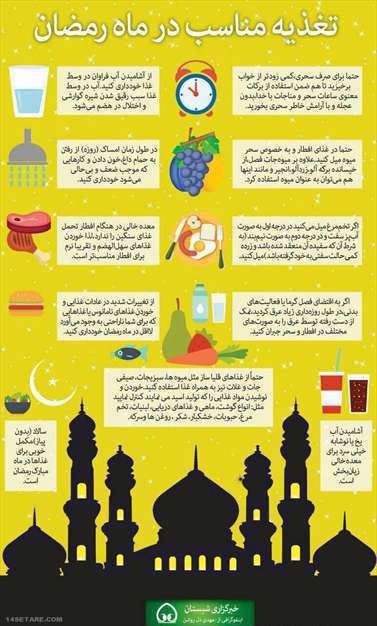 تغذیه مناسب در ماه رمضان
حتما برای صرف سحری،کمی زودتر از خواب
برخیزید تا هم ضمن استفاده از برکات
معنوی ساعات سحر و مناجات با خدا،بدون
عجله و با آرامش خاطر سحری بخورید.
از آشامیدن آب فراوان در وسط
غذا خودداری کنید.آب در وسط
غذا سبب رقیق شدن شیره گوارشی
و اختلال در هضم می‌شود.
حتما در غذای افطار و به خصوص سحر
میوه میل کنید.علاوه بر میوه‌جات فصل،از
خیسانده برگه آلو،زردآلو،انجیر و مانند اینها
هم می‌توان به عنوان میوه استفاده کرد.
در طول زمان امساک (روزه) از رفتن
به حمام داغ،خون دادن و کارهایی
که موجب ضعف و بی‌حالی
می‌شود خودداری کنید.
اگر تخم‌مرغ میل می‌کنید در درجه اول به صورت
آب‌پز سفت و در درجه دوم به صورت نیمروند (به
شرط آن که سفیده آن منعقد شده باشد و زرده
کمی حالت سفتی به خود گرفته باشد) میل کنید.
معده خالی در هنگام افطار تحمل
غذای سنگین را ندارد.لذا خوردن
غذاهای سهل‌الهضم و تقریبا نرم
برای افطار مناسب‌تر است.
اگر به اقتضای فصل گرما یا فعالیت‌های
بدنی،در طول روزه‌داری زیاد عرق کردید،نمک
از دست رفته توسط عرق را به صورت‌های
مختلف در افطار و سحر جبران کنید.
از تغییرات شدید در عادات غذایی و
خوردن غذاهای نامانوس یا غذاهایی
که برای شما ناراحتی به وجود می‌آورد
لااقل در ماه رمضان خودداری کنید.
حتماً از غذاهای قلیا ساز مثل میوه ها، سبزیجات، صیفی
جات و غلات نیز به همراه غذا استفاده کنید.خوردن و
نوشیدن مواد غذایی را که تولید اسید می نمایند کنترل نمایید
مثل: انواع گوشت، ماهی و غذاهای دریایی، لبنیات، تخم
مرغ، حبوبات، خشکبار، شکر ، روغن ها و سرکه.
آشامیدن آب
یخ یا نوشابه
خیلی سرد برای
معده‌خالی
زیان‌بخش
است.
سالاد (بدون
پیاز)مکمل
خوبی برای
غذاها در ماه
مبارک رمضان
است.
خبرگزاری شبستان
اینفوگرافی از : مهدی دل روشن
14SETARE.COM